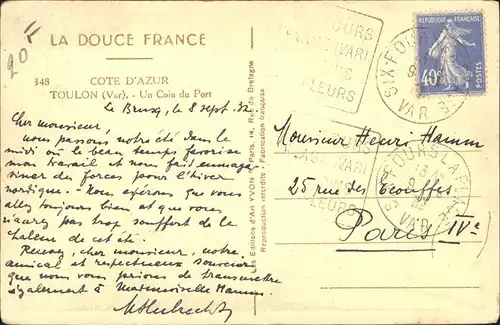 20 F
LA DOUCE FRANCE
348 COTE D'AZUR
TOULON (Var). - Un Coin du Port
Le Brusq, le 8 sept. 32
Cher monsieur,
nous passons notre été dans le
midi où le beau temps favorise
mon travail et nous fait emmaga-
siner des forces pour l'hiver
nordique. - Nous espérons que vous
allez toujours bien et que vous
n'aurez pas trop souffert de la
chaleur de cet été.
Recevez, cher monsieur, notre
amical et respectueux souvenir
que nous vous prions de transmettre
également à Mademoiselle Hamm.
Les Editions d'Art YVON, Paris, 14, Rue de Bretagne
Reproduction interdite - Fabrication française
FOURS
PLAGE (VAR)
FLEURS
SIX-FOURS
VAR
REPUBLIQUE FRANÇAISE
40c
Monsieur Henri Hamm
25 rue des Ecouffes
Paris IVe
FOURS
PLAGE (VAR)
FLEURS
SIX-FOURS-LA-PLAGE
VAR